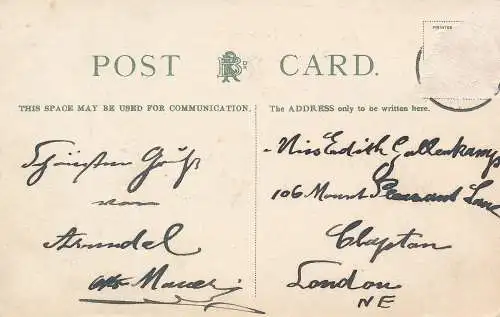 POST CARD.
THIS SPACE MAY BE USED FOR COMMUNICATION.
The ADDRESS only to be written here.
von
Arundel
Miss Edith Gallenkamp
106 Mount Pleasant Lane
Clapton
London
NE